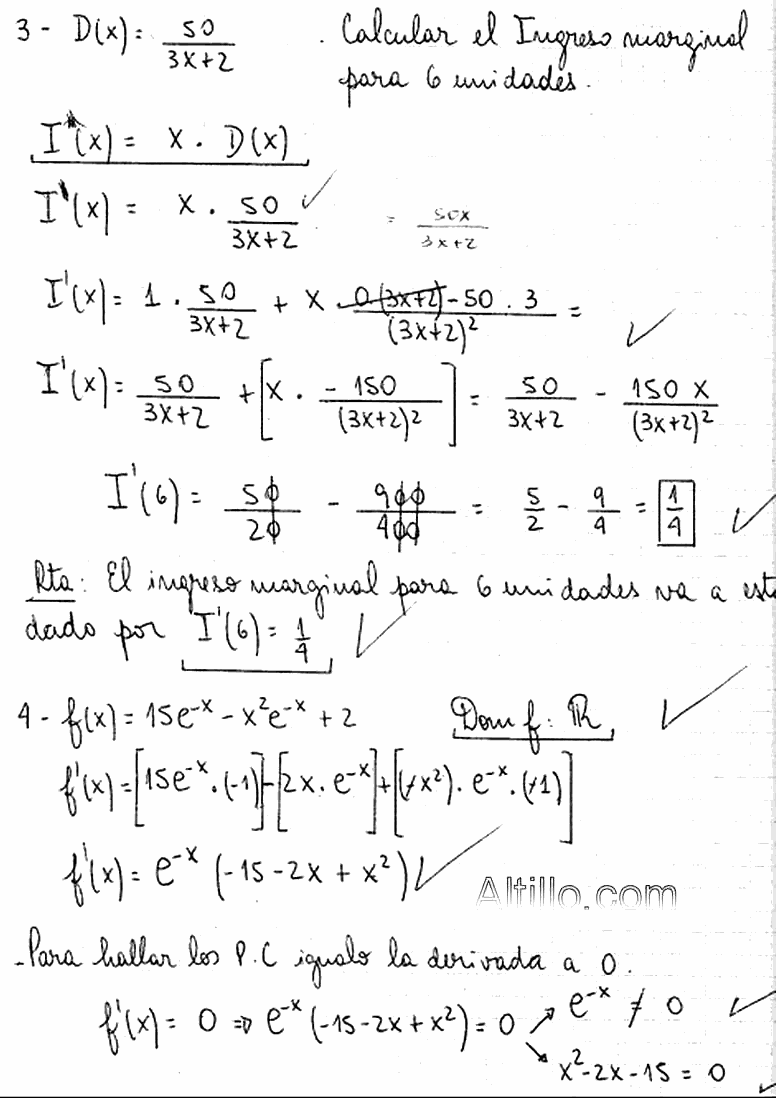 3 - D(x) = 50/(3x+2) . Calcular el Ingreso marginal
para 6 unidades.
I(x) = x . D(x)
I(x) = x . 50/(3x+2) ✓ = 50x/(3x+2)
I'(x) = 1 . 50/(3x+2) + x . (0(3x+2) - 50 . 3)/(3x+2)² =
I'(x) = 50/(3x+2) + [x . -150/(3x+2)²] = 50/(3x+2) - 150x/(3x+2)²
I'(6) = 50/20 - 900/400 = 5/2 - 9/4 = 1/4
Rta: El ingreso marginal para 6 unidades va a esta
dado por I'(6) = 1/4
4 - f(x) = 15e^-x - x²e^-x + 2 Dom f: ℝ
f'(x) = [15e^-x . (-1)] - [2x . e^-x] + [(-x²) . e^-x . (-1)]
f'(x) = e^-x (-15 - 2x + x²)
Altillo.com
- Para hallar los P.C igualo la derivada a 0.
f'(x) = 0 ⇒ e^-x (-15 - 2x + x²) = 0 ↗ e^-x ≠ 0
↘ x² - 2x - 15 = 0